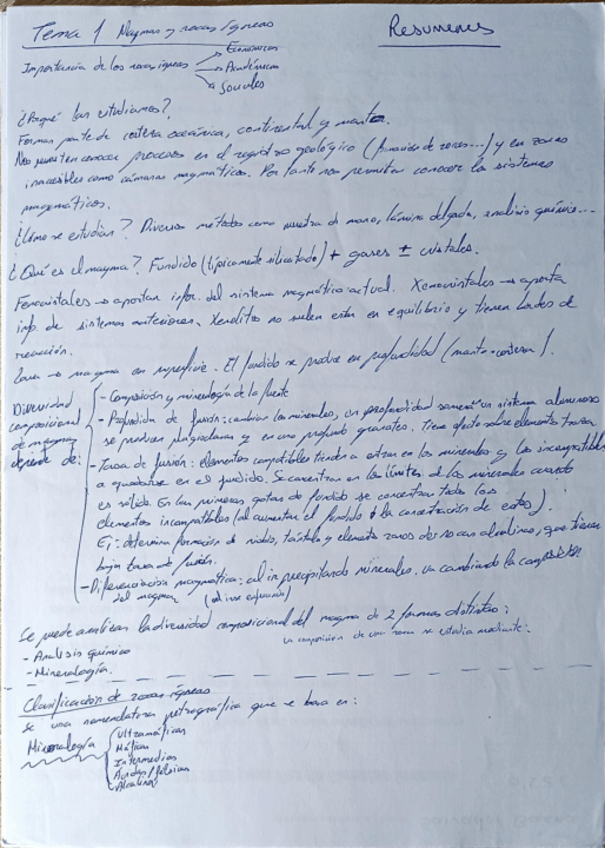 Tema 1 Magmas y rocas ígneas
Resumenes
Importancia de las rocas ígneas
Económicas
Académicas
Sociales
¿Porqué las estudiamos?
Forman parte de corteza oceánica, continental y manto.
Nos permiten conocer procesos en el registro geológico ( de zonas...) y en zonas
inaccesibles como cámaras magmáticas. Por tanto nos permiten conocer los sistemas
magmáticos.
¿Cómo se estudian? Diversos métodos como muestra de mano, lámina delgada, analisis químico...
¿Qué es el magma? Fundido (típicamente silicatado) + gases ± cristales.
Fenocristales → aportan infor. del sistema magmático actual. Xenocristales → aporta
info. de sistemas anteriores. Xenolitos no suelen estar en equilibrio y tienen bordes de
reacción.
Lava → magma en superficie. El fundido se produce en profundidad (manto-corteza).
Diversidad
composicional
de magmas
depende de:
- Composición y mineralogía de la fuente
- Profundidad de fusión: cambian los minerales, en profundidad somera un sistema aluminoso
se producen plagioclasas y en uno profundo granates. Tiene efecto sobre elementos traza
- Tasa de fusión: elementos compatibles tienden a entrar en los minerales y los incompatibles
a quedarse en el fundido. Se concentran en los límites de los minerales cuando
es sólido. En las primeras gotas de fundido se concentran todos los
elementos incompatibles (al aumentar el fundido ↓ la concentración de estos).
Ej: determina formación de niobio, tántalo y elementos raros des rocas alcalinas, que tienen
baja tasa de fusión.
- Diferenciación magmática: al ir precipitando minerales, va cambiando la composición
del magma (al irse enfriando)
Se puede analizar la diversidad composicional del magma de 2 formas distintas:
La composición de una roca se estudia mediante:
- Analisis químico
- Mineralogía.
Clasificación de rocas ígneas
Se una nomenclatura petrográfica que se basa en:
Mineralogía
Ultramáficas
Máficas
Intermedias
Ácidas/félsicas
Alcalinas